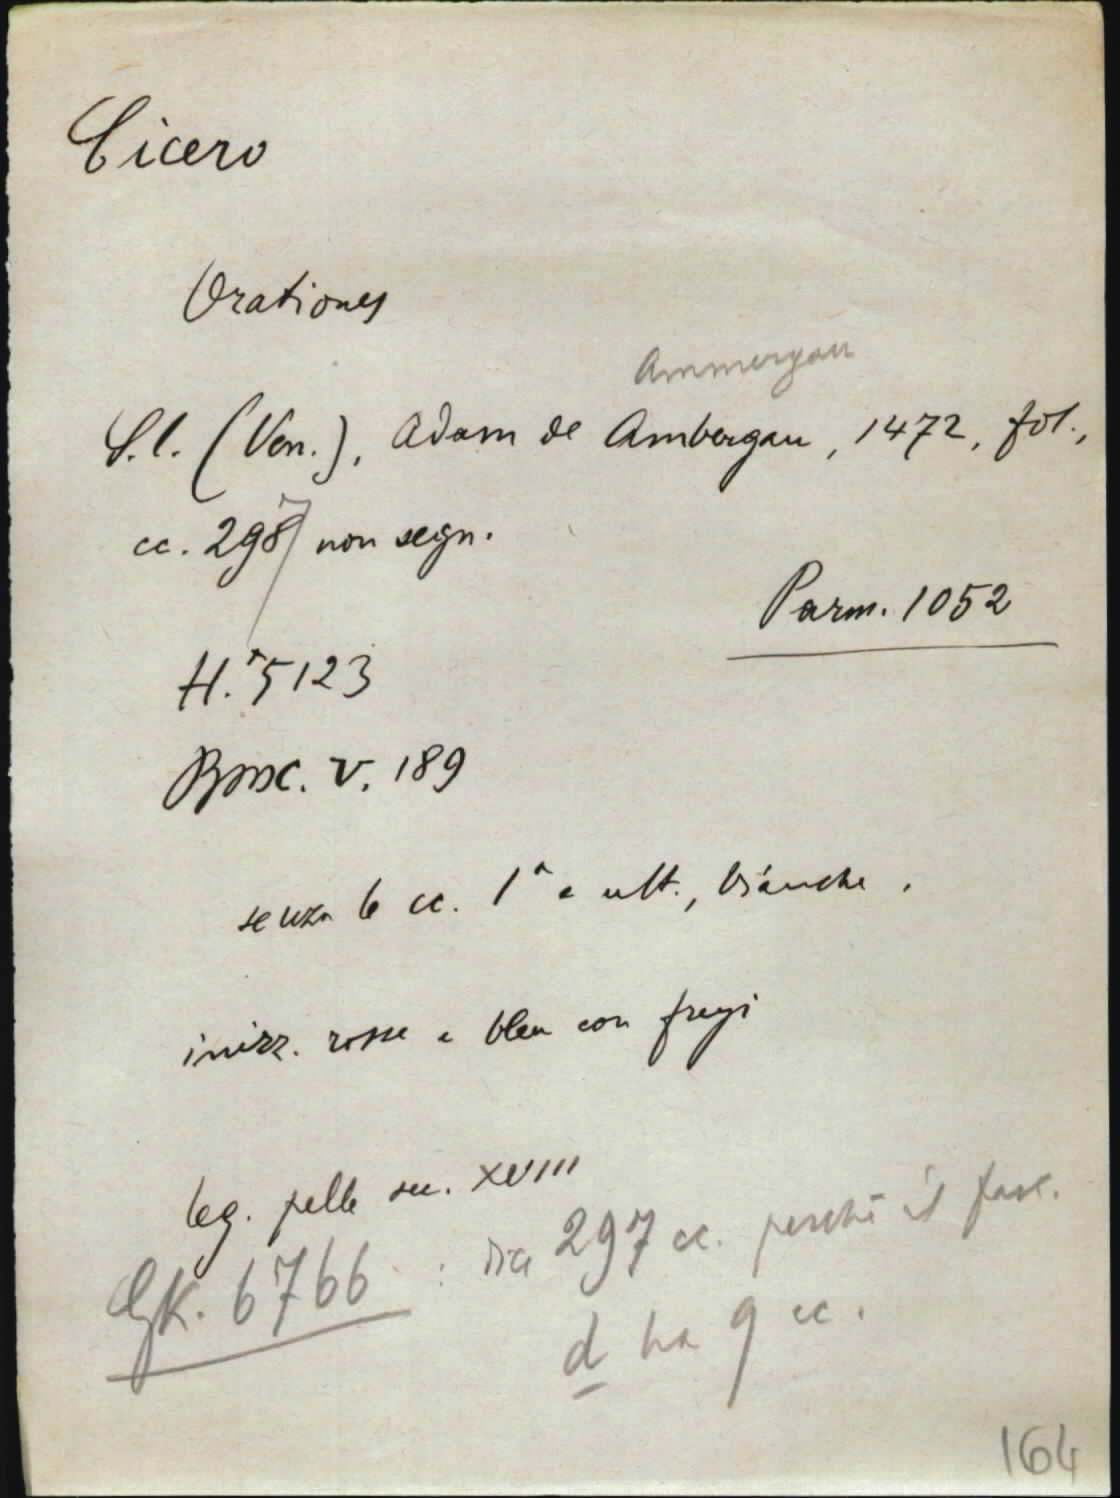 Cicero
Orationes
Ammergau
S.l. (Ven.), Adam de Ambergau, 1472, fol.,
cc. 298 7 non segn.
Parm. 1052
H.*5123
BMC. V. 189
senza le cc. 1ª e ult., bianche.
inizz. rosse e bleu con fregi
leg. pelle sec. XVIII
GK. 6766 : dice 297 cc. perché il fasc.
d ha 9 cc.
164